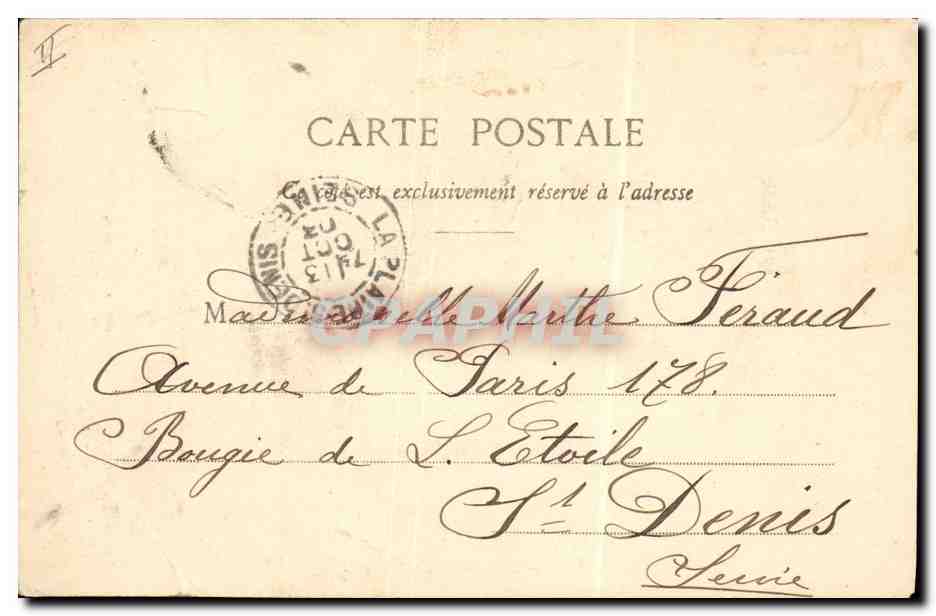 II
CARTE POSTALE
Ce côté est exclusivement réservé à l'adresse
LA PLAINE ST DENIS SEINE
13
OCT
03
Mademoiselle Marthe Feraud
Avenue de Paris 178.
Bougie de L. Etoile
St Denis
Seine
CPAPHIL